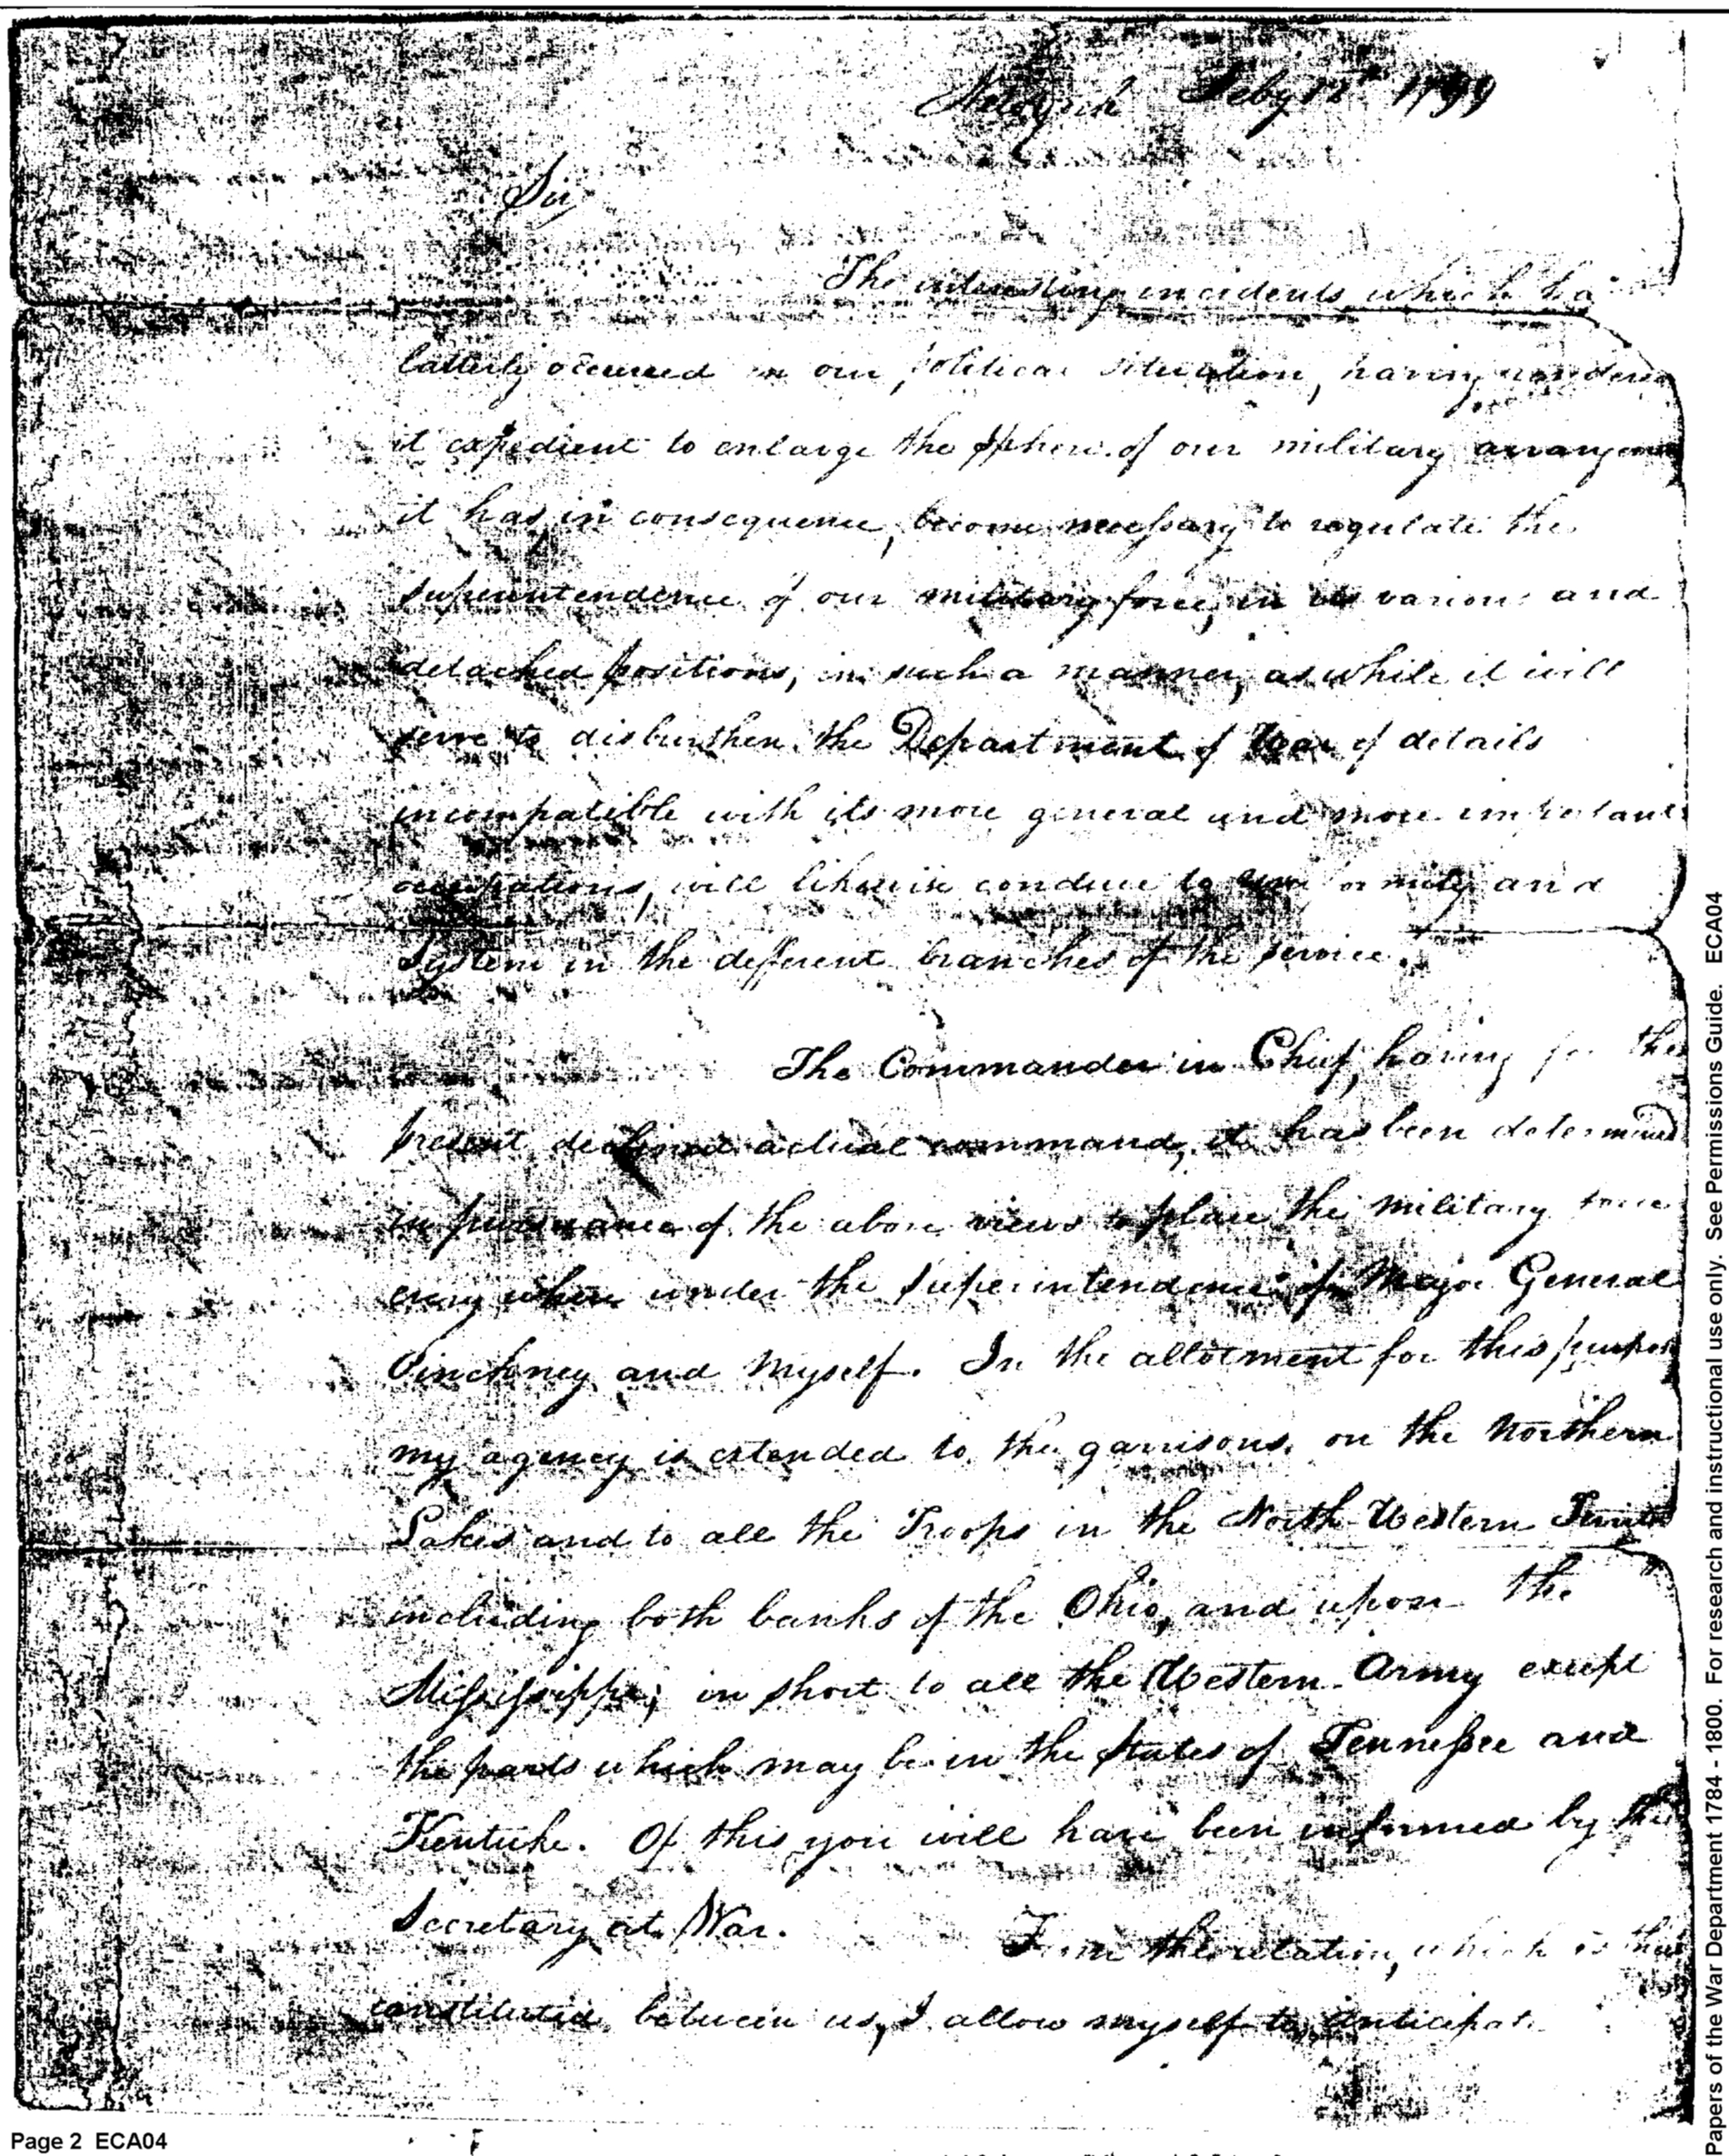 New York Feby 12th 1799
Sir
The interesting incidents which ha
latterly occurred in our political situation, having rendered
it expedient to enlarge the sphere of our military arrangem
it has in consequence, become necessary to regulate the
superintendence of our military force, in its various and
detached positions, in such a manner, as while it will
serve to disburthen the Department of War of details
incompatible with its more general and more important
occupations, will likewise conduce to uniformity and
System in the different branches of the service.
The Commander in Chief, having for the
present declined actual command, it has been determined
in pursuance of the above views to place the military force
every where under the superintendence of Major General
Pinckney and myself. In the allotment for this purpose
my agency is extended to the garrisons on the Northern
Lakes and to all the Troops in the North-Western Territo
including both banks of the Ohio, and upon the
Mississippi; in short to all the Western Army except
the parts which may be in the states of Tennessee and
Kentucke. Of this you will have been informed by the
Secretary at War.
From the relation, which is thus
constituted between us, I allow myself to anticipate
Page 2 ECA04
Papers of the War Department 1784 - 1800. For research and instructional use only. See Permissions Guide. ECA04